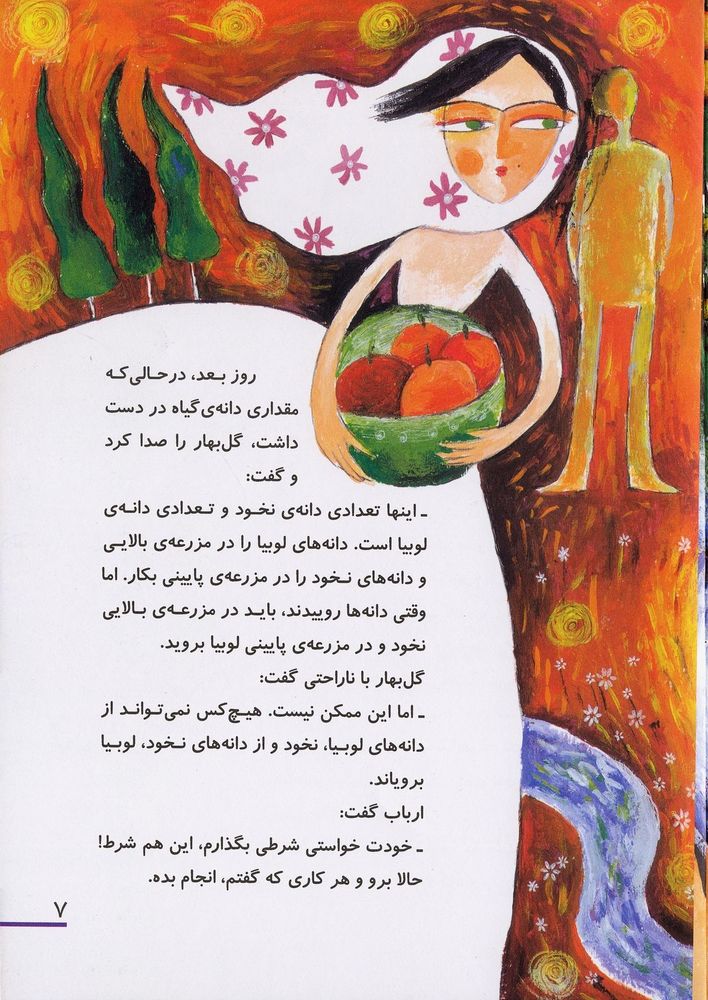 روز بعد، درحالی‌که
مقداری دانه‌ی گیاه در دست
داشت، گل‌بهار را صدا کرد
و گفت:
ـ اینها تعدادی دانه‌ی نخود و تعدادی دانه‌ی
لوبیا است. دانه‌های لوبیا را در مزرعه‌ی بالایی
و دانه‌های نخود را در مزرعه‌ی پایینی بکار. اما
وقتی دانه‌ها روییدند، باید در مزرعه‌ی بالایی
نخود و در مزرعه‌ی پایینی لوبیا بروید.
گل‌بهار با ناراحتی گفت:
ـ اما این ممکن نیست. هیچ‌کس نمی‌تواند از
دانه‌های لوبیا، نخود و از دانه‌های نخود، لوبیا
برویاند.
ارباب گفت:
ـ خودت خواستی شرطی بگذارم، این هم شرط!
حالا برو و هر کاری که گفتم، انجام بده.
۷